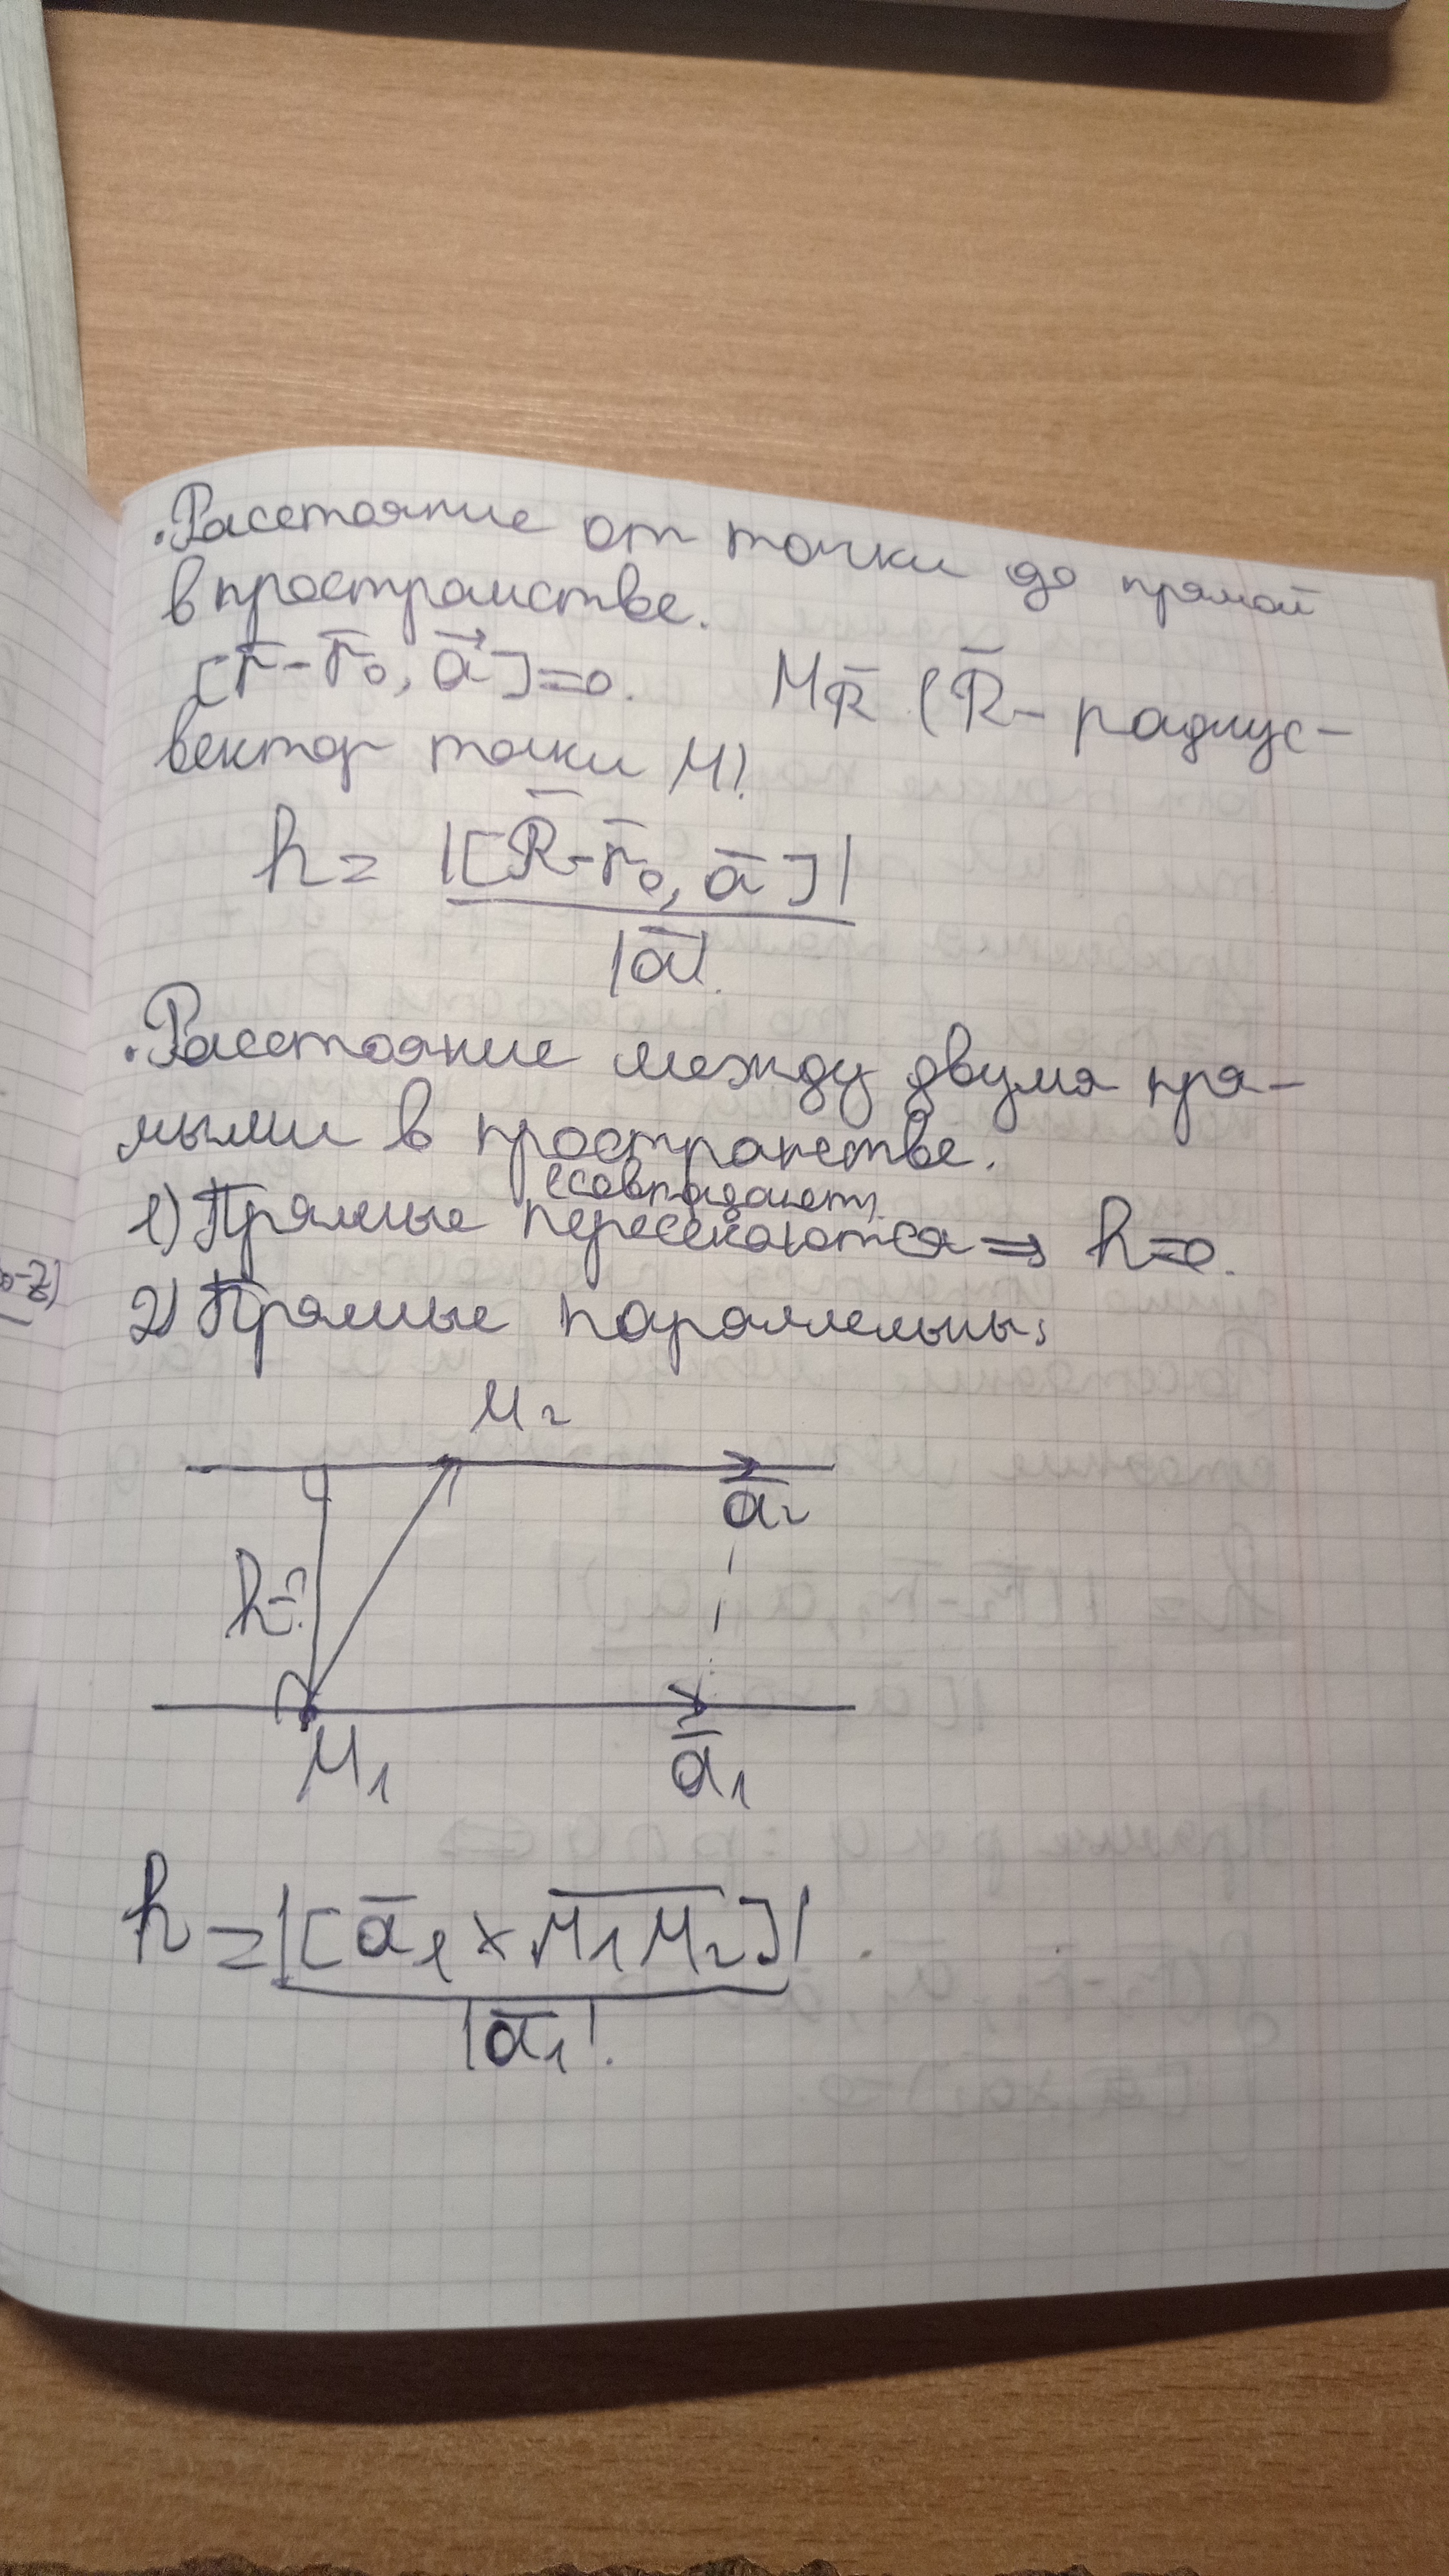 .Расстояние от точки до прямой
в пространстве.
[r̅-r̅₀, a⃗]=0. M_R̅ (R̅ - радиус-
вектор точки M)
h = |[R̅-r̅₀, a̅]|
|a̅|.
.Расстояние между двумя пря-
мыми в пространстве.
(совпадают)
1) Прямые пересекаются ⇒ h=0.
2) Прямые параллельны;
M₂
a̅₂
h-?
M₁
a̅₁
h = |[a̅₁ × M̅₁M̅₂]|.
|a̅₁|.
0-z)